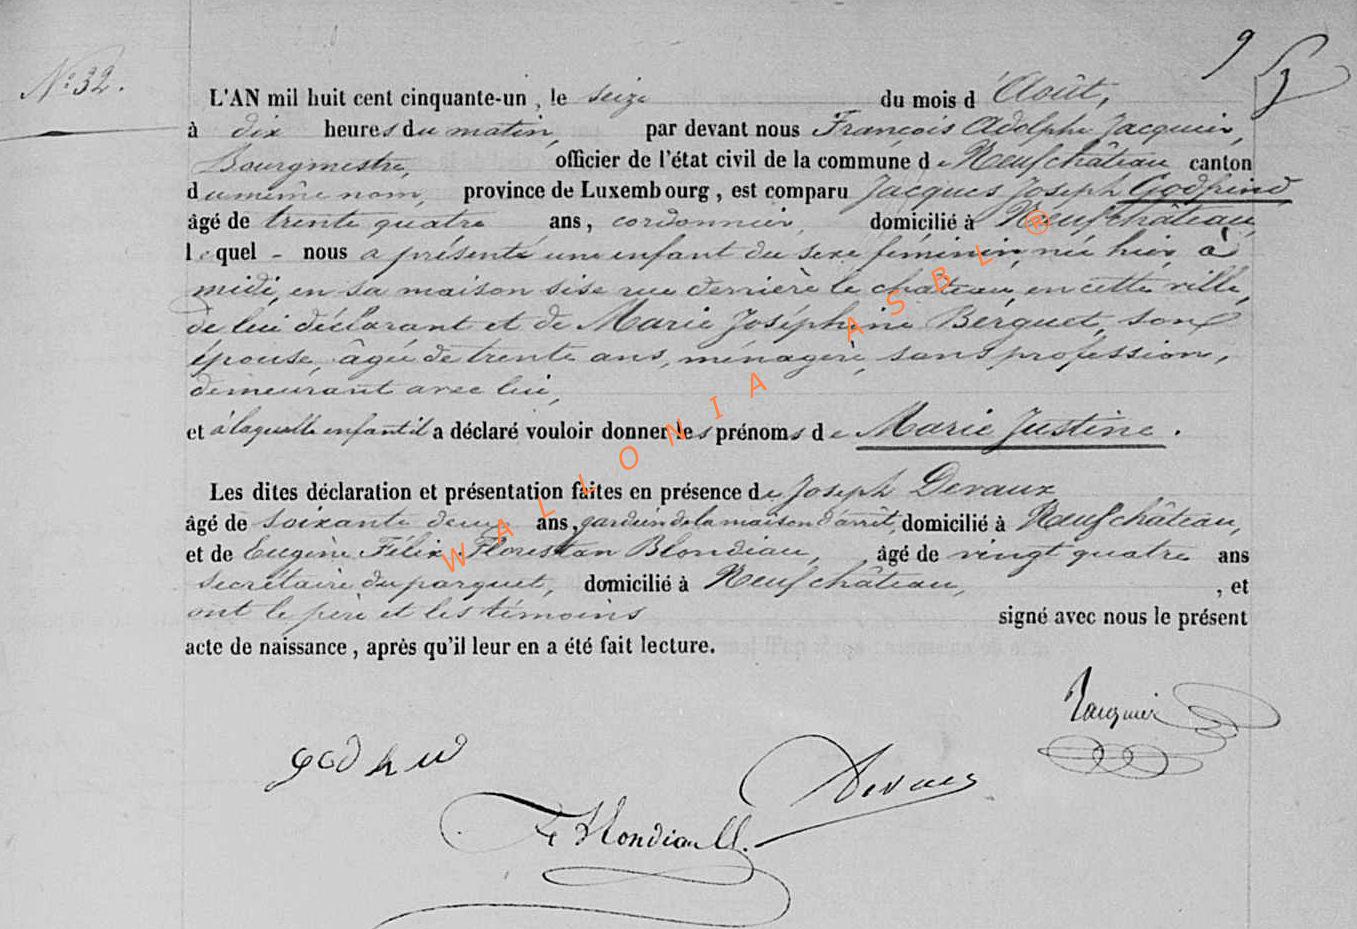 9
N° 32.
L'AN mil huit cent cinquante-un, le seize du mois d'Août,
à dix heures du matin, par devant nous François Adolphe Jacquier,
Bourgmestre, officier de l'état civil de la commune de Neufchâteau canton
du même nom, province de Luxembourg, est comparu Jacques Joseph Godfrind
âgé de trente quatre ans, cordonnier, domicilié à Neufchâteau,
lequel - nous a présenté une enfant du sexe féminin, née hier à
midi, en sa maison sise rue derrière le château, en cette ville,
de lui déclarant et de Marie Joséphine Berguet, son
épouse, âgée de trente ans, ménagère, sans profession,
demeurant avec lui,
et à laquelle enfant il a déclaré vouloir donner les prénoms de Marie Justine.
Les dites déclaration et présentation faites en présence de Joseph Devaux
âgé de soixante deux ans, gardien de la maison d'arrêt, domicilié à Neufchâteau,
et de Eugène Félix Florestan Blondiau, âgé de vingt quatre ans
secrétaire du parquet, domicilié à Neufchâteau, , et
ont le père et les témoins signé avec nous le présent
acte de naissance, après qu'il leur en a été fait lecture.
Jacquier
Devaux
WALLONIA ASBL ®